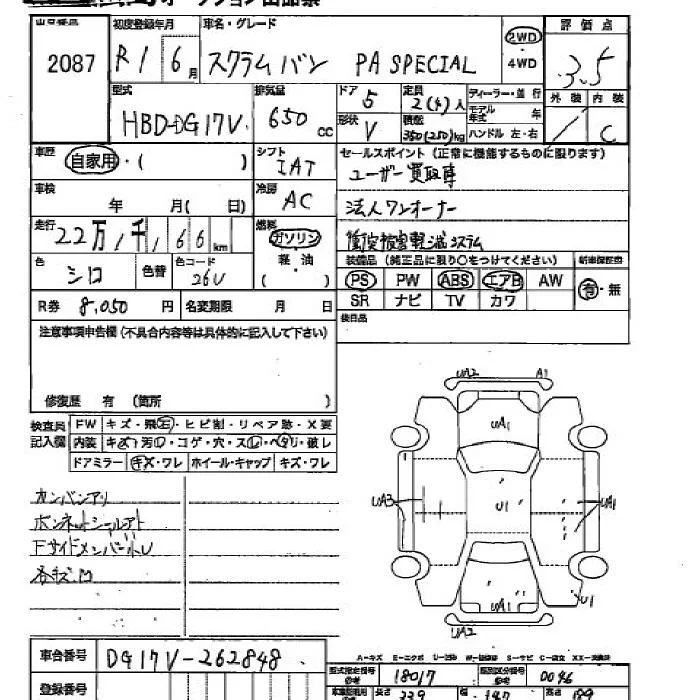 オークション出品票
出品番号 初度登録年月 車名・グレード 評価点
2087 R1 6月 スクラムバン PA SPECIAL 2WD ・ 4WD 3.5
型式 排気量 ドア 5 定員 2(4)人 ディーラー・並行 外装 内装
HBD-DG17V 650cc 形状 V 積載 350(250)kg モデル年式 年 ハンドル 左・右 / C
車歴 自家用・( ) シフト IAT セールスポイント(正常に機能するものに限ります)
ユーザー買取車
車検 年 月( 日) 冷房 AC 法人ワンオーナー
走行 22万1千166km 燃料 ガソリン 軽油 ( ) 衝突被害軽減システム
色 シロ 色替 色コード 26U 装備品(純正品に限り○をつけてください) 新車保証書
PS PW ABS エアB AW 有・無
R券 8,050円 名変期限 月 日 SR ナビ TV カワ
注意事項申告欄(不具合内容等は具体的に記入して下さい) 後日品
修復歴 有 (箇所 )
検査員記入欄 FW キズ・飛石・ヒビ割・リペア跡・X要
内装 キズ・汚レ・コゲ・穴・スレ・ヘタリ・破レ
ドアミラー キズ・ワレ ホイール・キャップ キズ・ワレ
UA2 A1
UA1
UA3 U1 UA1
U1
UA2
カンバンアリ
ボンネットシールアト
FサイドメンバーU
各キズ凹
A-キズ E-エクボ U-凹み W-補修跡 S-サビ C-腐食 XX-交換済
車台番号 DG17V-262848 型式指定番号 18017 類別区分番号 0046
登録番号 長さ 339 幅 147 高さ 189